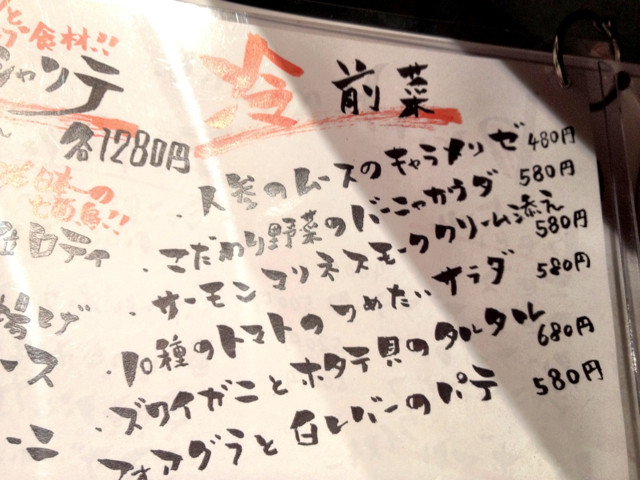 食材!!
シャンテ
各1280円
日本一の
冷 前菜
・人参のムースのキャラメリゼ 480円
・こだわり野菜のバーニャカウダ 580円
・サーモンマリネスモーククリーム添え 580円
・10種のトマトのつめたいサラダ 580円
・ズワイガニとホタテ貝のタルタル 680円
フォアグラと白レバーのパテ 580円
ロティ
揚げ
ース
ーニ